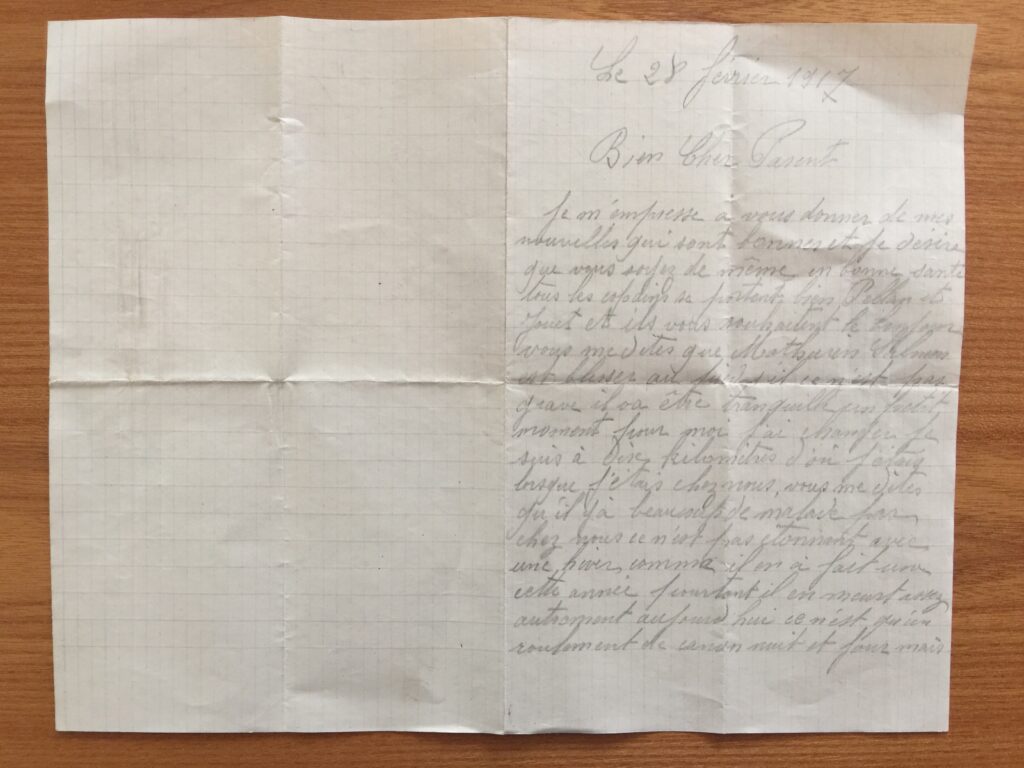 Le 28 février 1917
Bien Cher Parent
Je m'empresse a vous donner de mes
nouvelles qui sont bonnes et je désire
que vous soyez de même en bonne santé
tous les copains se portent bien et
Jouet et ils vous souhaitent le bonjour
vous me dites que Mathurin
est blesser au s'il ce n'est pas
grave il va être tranquille un petit
moment pour moi j'ai changer je
suis à dix kilomètres d'où j'étais
lorsque j'étais chez nous, vous me dites
qu'il y à beaucoup de malade par
chez nous ce n'est pas étonnant avec
une hiver comme il en à fait une
cette année pourtant il en meurt assez
autrement aujourd'hui ce n'est qu'un
roulement de canon nuit et jour mais